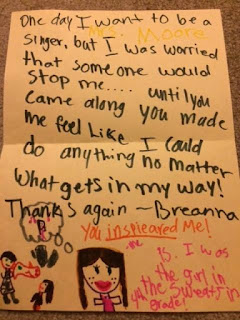 One day I want to be a
Mrs. Moore
singer, but I was worried
that someone would
stop me.... until you
came along you made
me feel Like I could
do anything no matter
What gets in my way!
Thanks again ~Breanna
You inspieared Me!
I was
the girl in
the sweats in
grade!